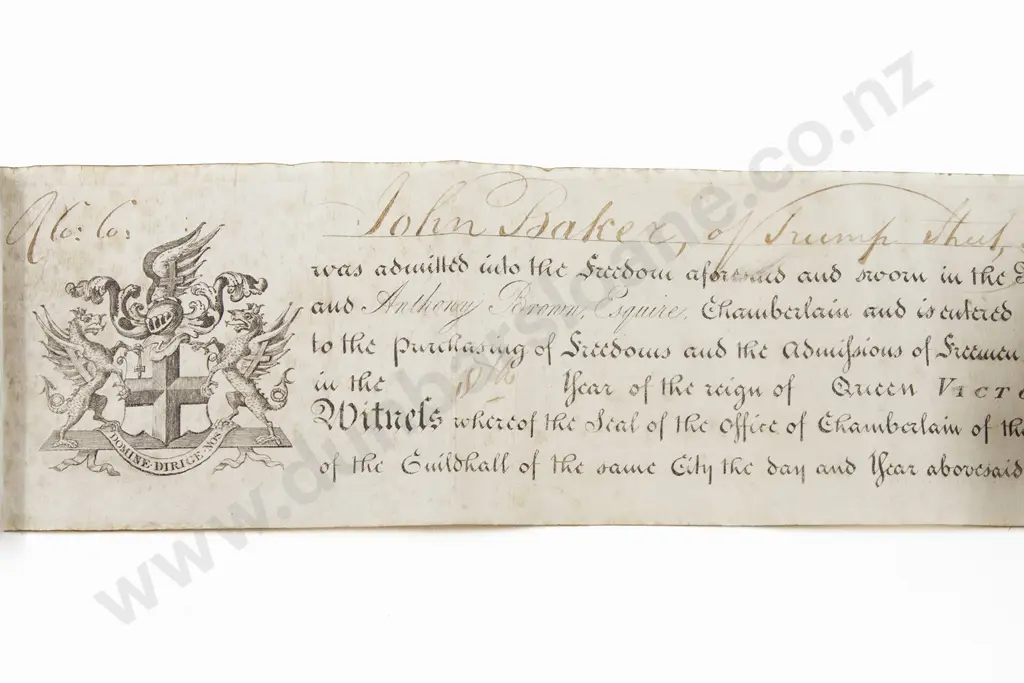 John Baker, of Trump Street,
was admitted into the Freedom aforesaid and sworn in the
and Anthony Brown, Esquire, Chamberlain and is entered
to the purchasing of Freedoms and the Admiſsions of Freemen
in the Year of the reign of Queen VICTO
Witneſs whereof the Seal of the Office of Chamberlain of the
of the Guildhall of the same City the day and Year abovesaid
DOMINE DIRIGE NOS
www.dunbarsloane.co.nz